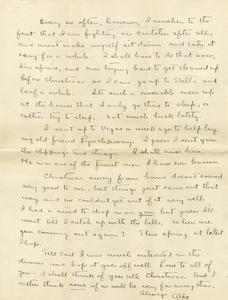 Every so often, however, I awaken to the
fact that I am fighting, an invalid after all,
and must make myself sit down and take it
easy for a while. I shall have to do that now,
I'm afraid, and am trying hard to get cleaned up
before Christmas so I can go up to and
loaf a while. It's such a miserable mess up
at the house that I only go there to sleep, or
rather, try to sleep, not much luck lately.
I went up to Vegas a week ago to help lay
my old friend away. I guess I sent you
the clippings and things. I shall miss him.
He was one of the finest men I have ever known.
Christmas away from home doesn't sound
very good to me, but things just came out that
way and we couldn't get out of it very well.
I had a mind to drop in on you but guess it'll
wait till I catch up with the bills. When are
you coming out again? This spring at latest
I hope.
Tell Carl I was much interested in the
dinner and hope it goes off well. Love to all of
you - I shall think of you all Christmas. And I
rather think none of us will be very far away.
Always